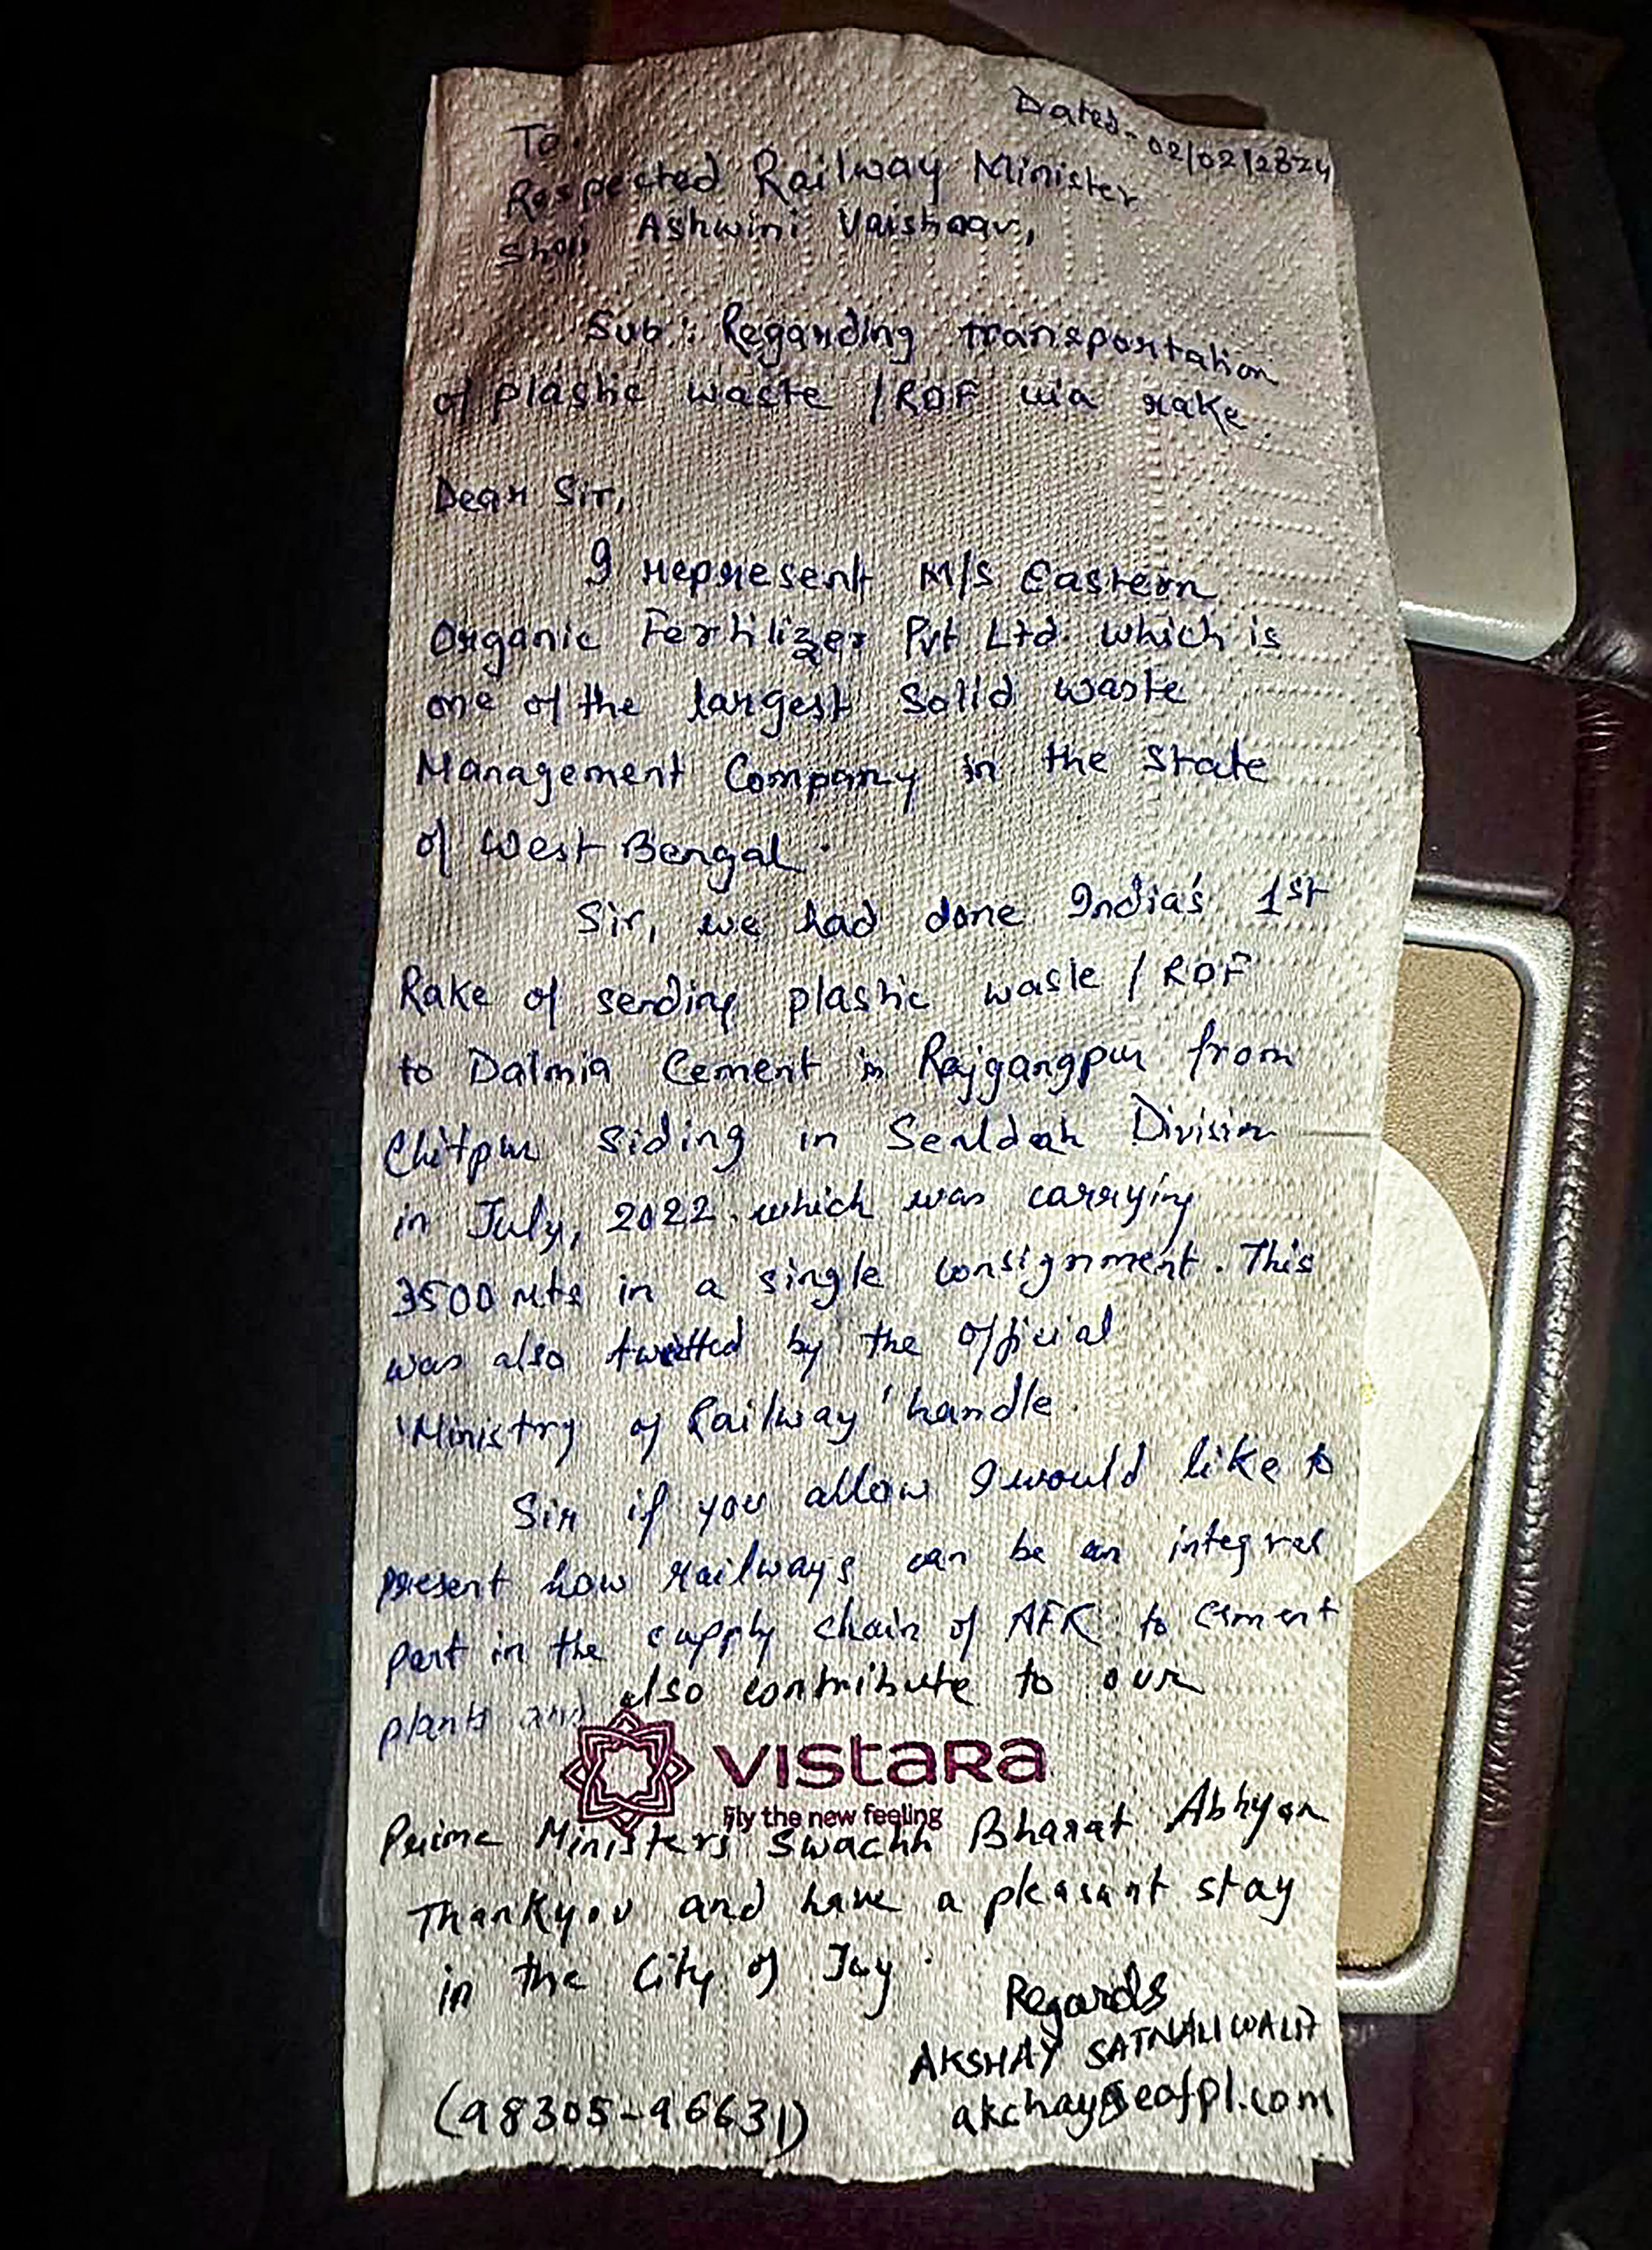 Dated- 02/02/2024
To.
Respected Railway Minister
Shri Ashwini Vaishnav,
Sub: Regarding transportation
of plastic waste / RDF via rake.
Dear Sir,
I represent M/S Eastern
Organic Fertilizer Pvt Ltd. which is
one of the largest Solid waste
Management Company in the state
of West Bengal.
Sir, we had done India's 1st
Rake of sending plastic waste / RDF
to Dalmia Cement in Rajgangpur from
Chitpur siding in Sealdah Division
in July, 2022. which was carrying
3500 Mts in a single consignment. This
was also tweitted by the official
'Ministry of Railway' handle.
Sir if you allow I would like to
present how railways can be an integral
part in the supply chain of AFR to cement
plants and also contribute to our
vistara
Fly the new feeling
Prime Ministers Swachh Bharat Abhyan
Thankyou and have a pleasant stay
in the City of Joy.
Regards
AKSHAY SATNALIWALA
(98305-96631)
akshay@eofpl.com